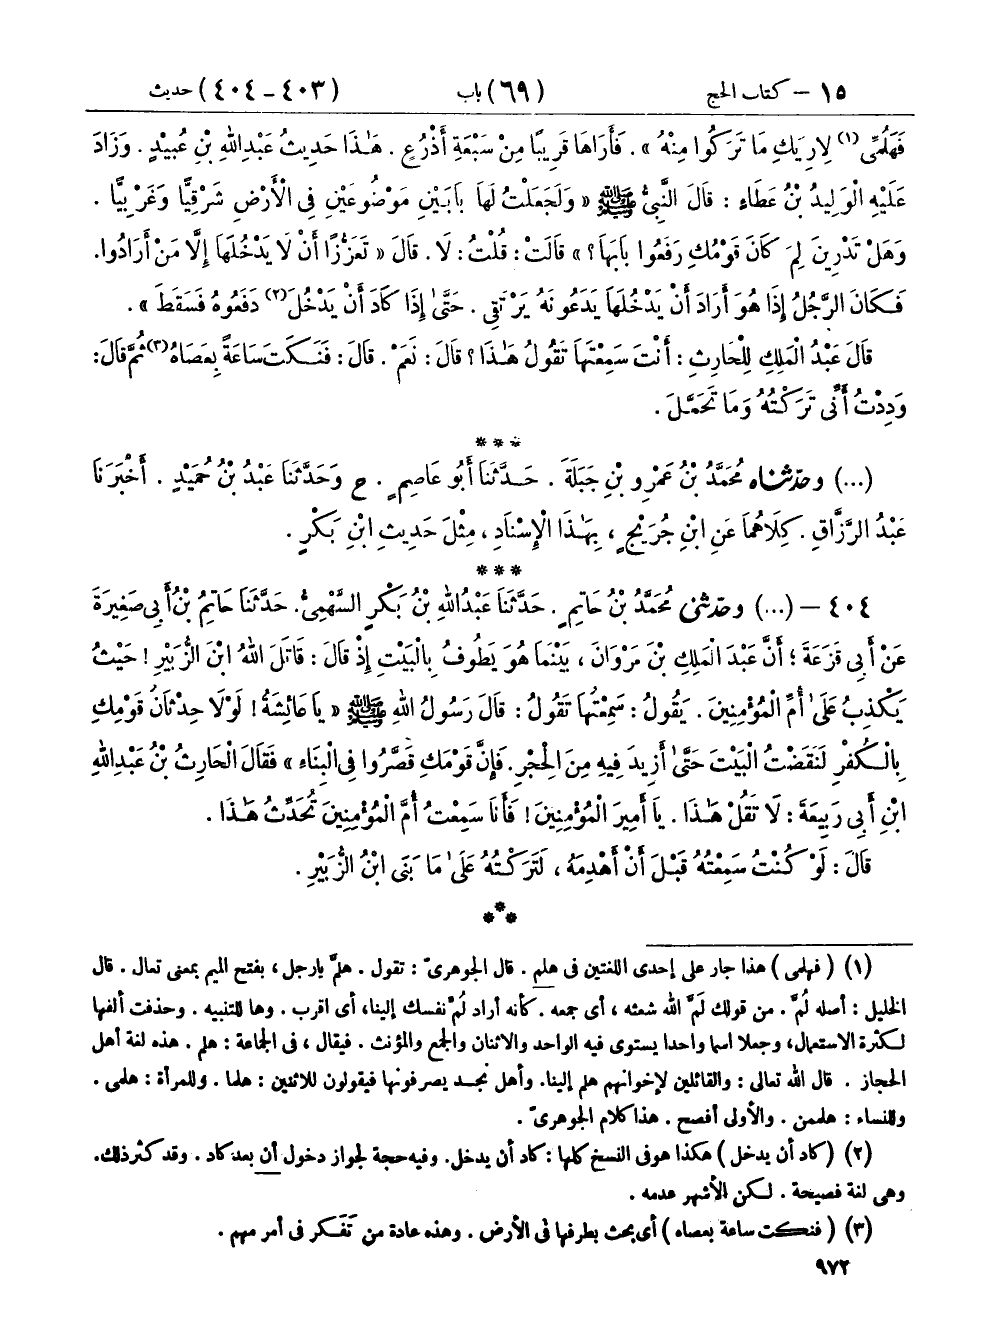 ١٥ – كتاب الحج (٦٩) باب (٤٠٣ – ٤٠٤) حديث
فَهَلُمِّى(١) لِأُرِيَكِ مَا تَرَكُوا مِنْهُ » . فَأَرَاهَا قَرِيبًا مِنْ سَبْعَةِ أَذْرُعٍ . هَٰذَا حَدِيثُ عَبْدِ اللهِ بْنِ عُبَيْدٍ . وَزَادَ
عَلَيْهِ الْوَلِيدُ بْنُ عَطَاءٍ : قَالَ النَّبِىُّ ﷺ « وَلَجَعَلْتُ لَهَا بَابَيْنِ مَوْضُوعَيْنِ فِى الْأَرْضِ شَرْقِيًّا وَغَرْبِيًّا .
وَهَلْ تَدْرِينَ لِمَ كَانَ قَوْمُكِ رَفَعُوا بَابَهَا ؟ » قَالَتْ : قُلْتُ : لَا . قَالَ « تَعَزُّزًا أَنْ لَا يَدْخُلَهَا إِلَّا مَنْ أَرَادُوا .
فَكَانَ الرَّجُلُ إِذَا هُوَ أَرَادَ أَنْ يَدْخُلَهَا يَدَعُونَهُ يَرْتَقِى . حَتَّىٰ إِذَا كَادَ أَنْ يَدْخُلَ(٢) دَفَعُوهُ فَسَقَطَ » .
قَالَ عَبْدُ الْمَلِكِ لِلْحَارِثِ : أَنْتَ سَمِعْتَهَا تَقُولُ هَٰذَا ؟ قَالَ : نَعَمْ . قَالَ : فَنَكَتَ سَاعَةً بِعَصَاهُ(٣) ثُمَّ قَالَ :
وَدِدْتُ أَنِّى تَرَكْتُهُ وَمَا تَحَمَّلَ .
***
(...) وحدّثناه مُحَمَّدُ بْنُ عَمْرِو بْنِ جَبَلَةَ . حَدَّثَنَا أَبُو عَاصِمٍ . ح وَحَدَّثَنَا عَبْدُ بْنُ حُمَيْدٍ . أَخْبَرَنَا
عَبْدُ الرَّزَّاقِ . كِلَاهُمَا عَنِ ابْنِ جُرَيْجٍ ، بِهَٰذَا الْإِسْنَادِ ، مِثْلَ حَدِيثِ ابْنِ بَكْرٍ .
***
٤٠٤ – (...) وحدّثنى مُحَمَّدُ بْنُ حَاتِمٍ . حَدَّثَنَا عَبْدُ اللهِ بْنُ بَكْرٍ السَّهْمِىُّ . حَدَّثَنَا حَاتِمُ بْنُ أَبِى صَغِيرَةَ
عَنْ أَبِى قَزَعَةَ ؛ أَنَّ عَبْدَ الْمَلِكِ بْنَ مَرْوَانَ ، بَيْنَمَا هُوَ يَطُوفُ بِالْبَيْتِ إِذْ قَالَ : قَاتَلَ اللهُ ابْنَ الزُّبَيْرِ ! حَيْثُ
يَكْذِبُ عَلَىٰ أُمِّ الْمُؤْمِنِينَ . يَقُولُ : سَمِعْتُهَا تَقُولُ : قَالَ رَسُولُ اللهِ ﷺ « يَا عَائِشَةُ ! لَوْلَا حِدْثَانُ قَوْمِكِ
بِالْكُفْرِ لَنَقَضْتُ الْبَيْتَ حَتَّىٰ أَزِيدَ فِيهِ مِنَ الْحِجْرِ . فَإِنَّ قَوْمَكِ قَصَّرُوا فِى الْبِنَاءِ » فَقَالَ الْحَارِثُ بْنُ عَبْدِ اللهِ
ابْنِ أَبِى رَبِيعَةَ : لَا تَقُلْ هَٰذَا . يَا أَمِيرَ الْمُؤْمِنِينَ ! فَأَنَا سَمِعْتُ أُمَّ الْمُؤْمِنِينَ تُحَدِّثُ هَٰذَا .
قَالَ : لَوْ كُنْتُ سَمِعْتُهُ قَبْلَ أَنْ أَهْدِمَهُ ، لَتَرَكْتُهُ عَلَىٰ مَا بَنَى ابْنُ الزُّبَيْرِ .
***
(١) ( فهلمى ) هذا جار على إحدى اللغتين فى هلم . قال الجوهرىّ : تقول . هلمّ يا رجل ، بفتح الميم بمعنى تعال . قال
الخليل : أصله لُمَّ . من قولك لَمَّ الله شعثه ، أى جمعه . كأنه أراد لُمَّ نفسك إلينا ، أى اقرب . وها للتنبيه . وحذفت ألفها
لكثرة الاستعمال ، وجعلا اسما واحدا يستوى فيه الواحد والاثنان والجمع والمؤنث . فيقال ، فى الجماعة : هلم . هذه لغة أهل
الحجاز . قال الله تعالى : والقائلين لإخوانهم هلم إلينا . وأهل نجد يصرفونها فيقولون للاثنين : هلما . وللمرأة : هلمى .
وللنساء : هلممن . والأولى أفصح . هذا كلام الجوهرىّ .
(٢) ( كاد أن يدخل ) هكذا هو فى النسخ كلها : كاد أن يدخل . وفيه حجة لجواز دخول أن بعد كاد . وقد كثر ذلك .
وهى لغة فصيحة . لكن الأشهر عدمه .
(٣) ( فنكت ساعة بعصاه ) أى بحث بطرفها فى الأرض . وهذه عادة من تَفَكر فى أمر مهم .
٩٧٢